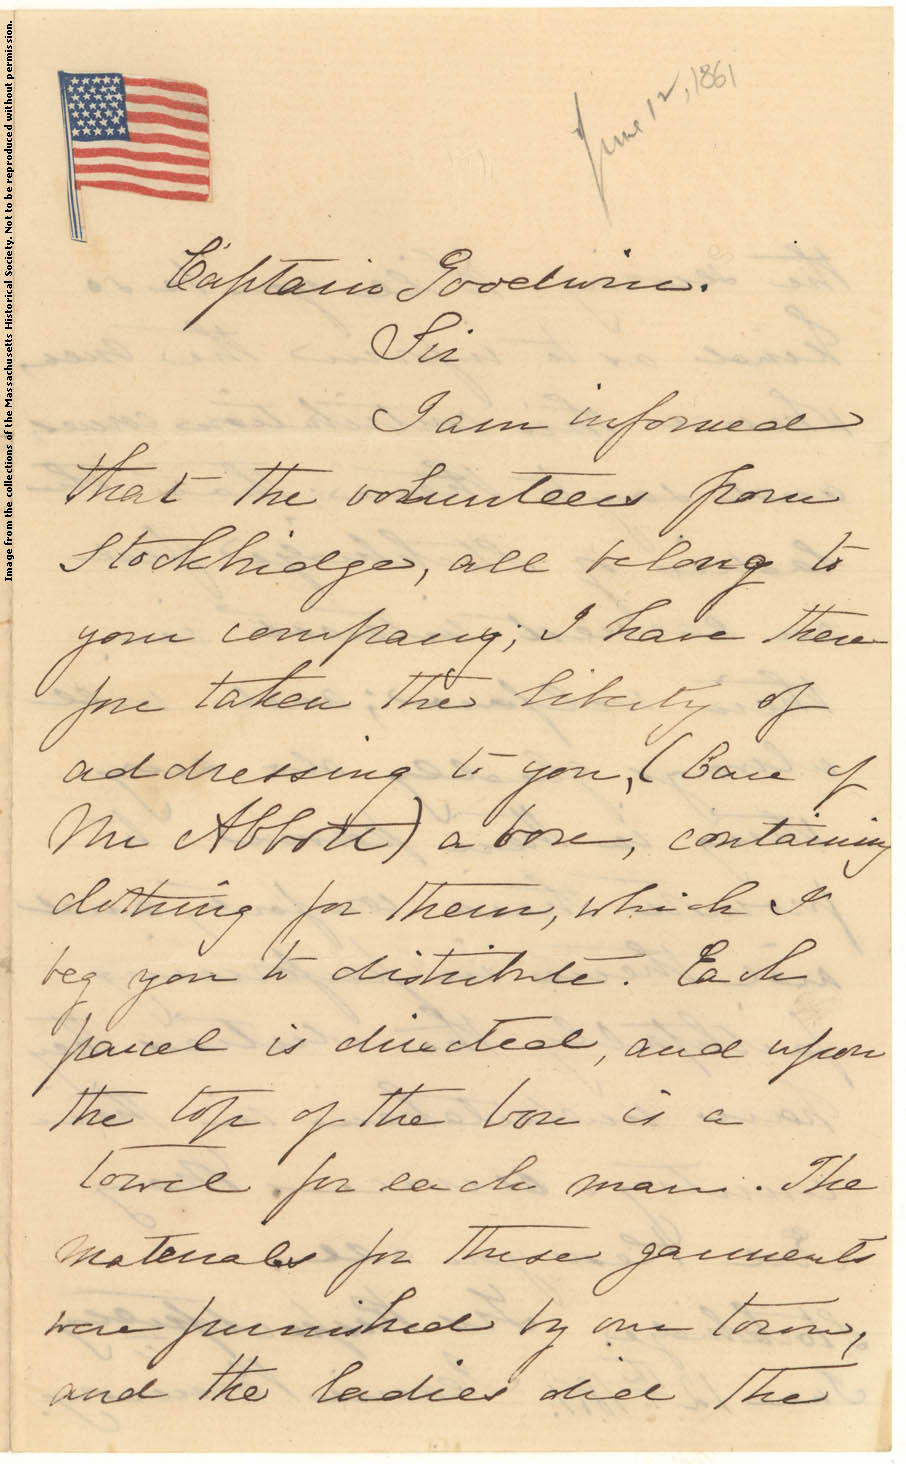 Image from the collections of the Massachusetts Historical Society. Not to be reproduced without permission.
June 12, 1861
Captain Goodwin.
Sir
I am informed
that the volunteers from
Stockbridge, all belong to
your company; I have there
fore taken the liberty of
addressing to you, (Care of
Mr Abbott) a box, containing
clothing for them, which I
beg you to distribute. Each
parcel is directed, and upon
the top of the box is a
towel for each man. The
materials for these garments
were furnished by our town,
and the ladies did the